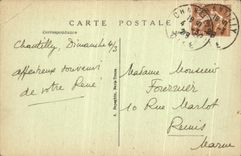 CARTE POSTALE
Correspondance
CHANTILLY
Chantilly, Dimanche 4/3
affectueux souvenir
de votre René
Madame Monsieur
Fournier
10 Rue Marlot
Reims
Marne